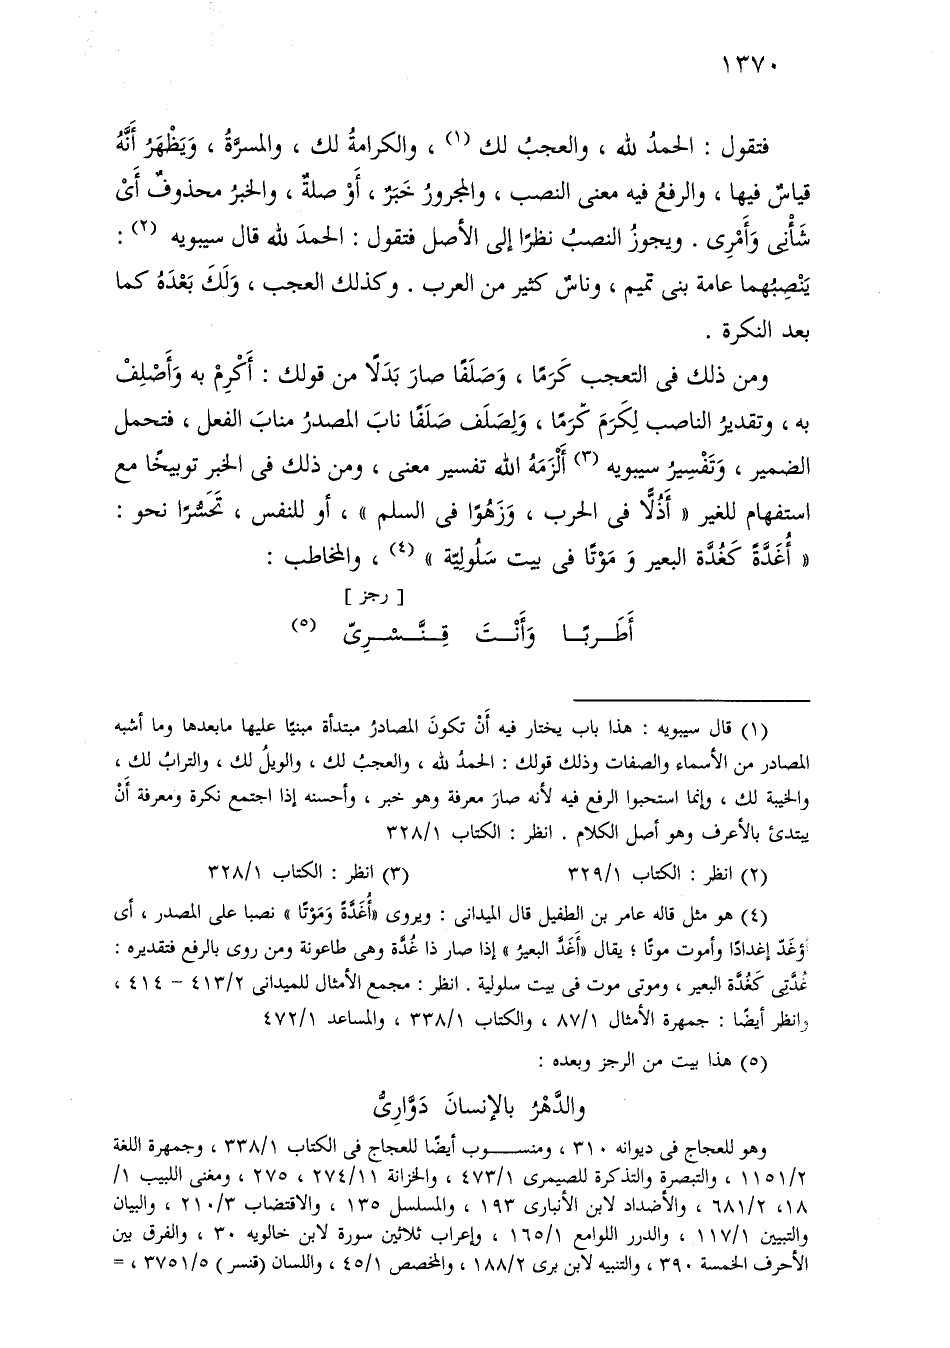 ١٣٧٠
فتقول : الحمدُ لله ، والعجبُ لك (١) ، والكرامةُ لك ، والمسرَّةُ ، وَيَظْهَرُ أَنَّهُ
قياسٌ فيها ، والرفعُ فيه معنى النصب ، والمجرورُ خَبَرٌ ، أَوْ صلةٌ ، والخبرُ محذوفٌ أَىْ
شَأْنِى وَأَمْرِى . ويجوزُ النصبُ نظرًا إلى الأصل فتقول : الحمدَ لله قال سيبويه (٢) :
يَنْصِبُهما عامة بنى تميم ، وناسٌ كثير من العرب . وكذلك العجب ، وَلَكَ بَعْدَهُ كما
بعد النكرة .
ومن ذلك فى التعجب كَرَمًا ، وَصَلَفًا صارَ بَدَلًا من قولك : أَكْرِمْ به وَأَصْلِفْ
به ، وتقديرُ الناصب لِكَرَمَ كَرَمًا ، وَلِصَلَف صَلَفًا نابَ المصدرُ منابَ الفعل ، فتحمل
الضمير ، وَتَفْسِيرُ سيبويه (٣) أَلْزَمَهُ الله تفسير معنى ، ومن ذلك فى الخبر توبيخًا مع
استفهام للغير « أَذُلًّا فى الحرب ، وَزَهُوًا فى السلم » ، أو للنفس ، تَحَسُّرًا نحو :
« أُغَدَّةً كَغُدَّة البعير وَ مَوْتًا فى بيت سَلُولِيّة » (٤) ، والمخاطب :
[ رجز ]
أَطَـربًـا وَأَنْـتَ قِـنَّـسْـرِىّ (٥)
(١) قال سيبويه : هذا باب يختار فيه أَنْ تكونَ المصادرُ مبتدأة مبنيًا عليها مابعدها وما أشبه
المصادر من الأسماء والصفات وذلك قولك : الحمدُ لله ، والعجبُ لك ، والويلُ لك ، والترابُ لك ،
والخيبة لك ، وإنما استحبوا الرفع فيه لأنه صارَ معرفة وهو خبر ، وأحسنه إذا اجتمع نكرة ومعرفة أَنْ
يبتدئ بالأعرف وهو أصل الكلام . انظر : الكتاب ٣٢٨/١
(٢) انظر : الكتاب ٣٢٩/١ (٣) انظر : الكتاب ٣٢٨/١
(٤) هو مثل قاله عامر بن الطفيل قال الميدانى : ويروى «أُغَدَّةً وَمَوْتًا » نصبا على المصدر ، أى
ؤغَدّ إغدادًا وأموت موتًا ؛ يقال «أَغَدَّ البعيرُ » إذا صار ذا غُدَّة وهى طاعونة ومن روى بالرفع فتقديره :
غُدَّتِى كَغُدَّة البعير ، وموتى موت فى بيت سلولية . انظر : مجمع الأمثال للميدانى ٤١٣/٢ – ٤١٤ ،
وانظر أيضًا : جمهرة الأمثال ٨٧/١ ، والكتاب ٣٣٨/١ ، والمساعد ٤٧٢/١
(٥) هذا بيت من الرجز وبعده :
والدَّهْرُ بالإنسانَ دَوَّارِىُّ
وهو للعجاج فى ديوانه ٣١٠ ، ومنســوب أيضًا للعجاج فى الكتاب ٣٣٨/١ ، وجمهرة اللغة
١١٥١/٢ ، والتبصرة والتذكرة للصيمرى ٤٧٣/١ ، والخزانة ٢٧٤/١١ ، ٢٧٥ ، ومغنى اللبيب ١/
١٨، ٦٨١/٢ ، والأضداد لابن الأنبارى ١٩٣ ، والمسلسل ١٣٥ ، والاقتضاب ٢١٠/٣ ، والبيان
والتبيين ١١٧/١ ، والدرر اللوامع ١٦٥/١ ، وإعراب ثلاثين سورة لابن خالويه ٣٠ ، والفرق بين
الأحرف الخمسة ٣٩٠ ، والتنبيه لابن برى ١٨٨/٢ ، والمخصص ٤٥/١ ، واللسان (قنسر ) ٣٧٥١/٥ ، =